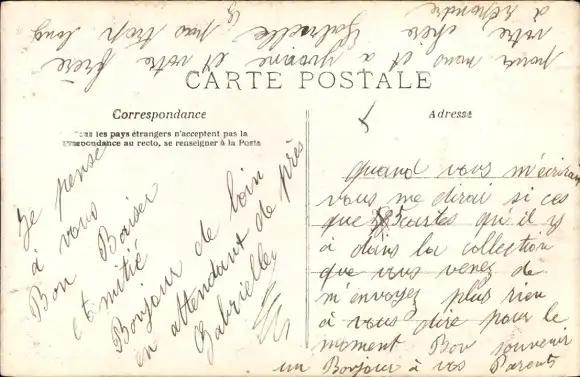 CARTE POSTALE
Correspondance
Tous les pays étrangers n'acceptent pas la
correspondance au recto, se renseigner à la Poste
Adresse
Je pense
à vous
Bon Baiser
et mitié
Bonjour de loin
en attendant de près
Gabrielle
quand vous m'écrirai
vous me dirai si ces
que 5 cartes qu'il y
à dans la collection
que vous venez de
m'envoyez plus rien
à vous dire pour le
moment Bon souvenir
un Bonjour à vos Parents
pour nous et a Yvonne et votre frère
votre chère Gabrielle pas trop long
à répondre